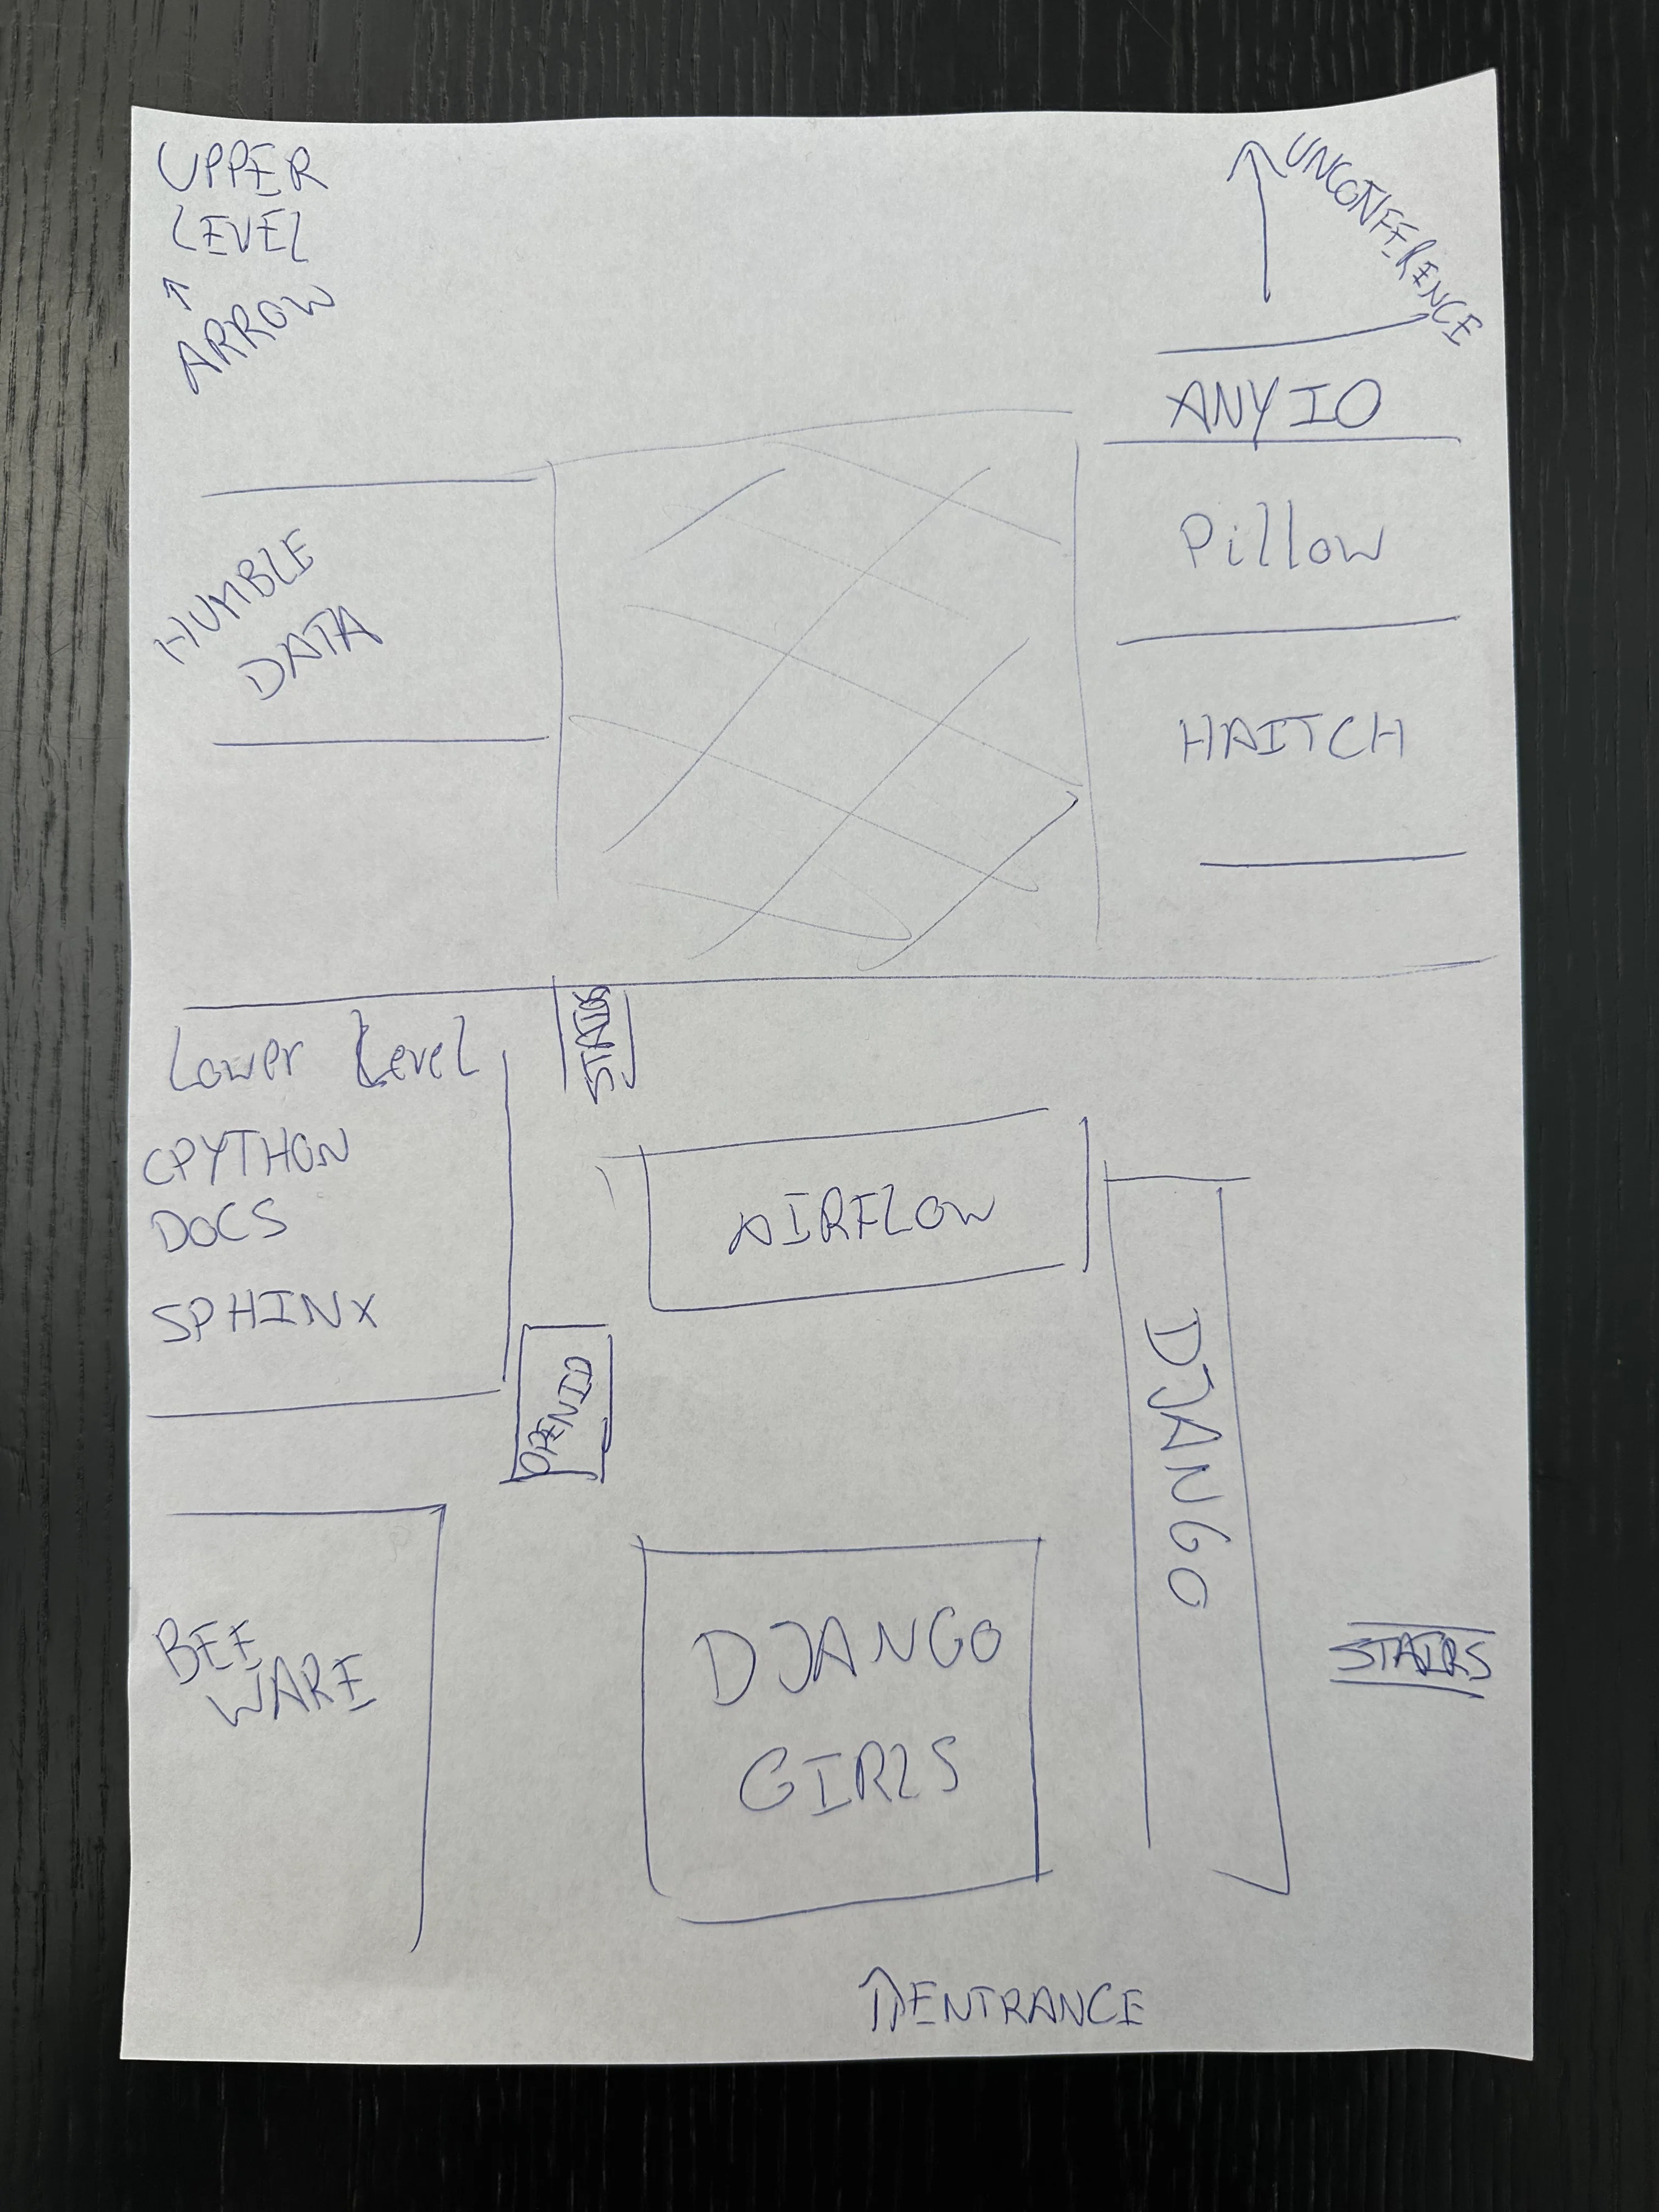 UPPER
LEVEL
↑
ARROW
↑ UNCONFERENCE
ANYIO
Pillow
HAITCH
HUMBLE
DATA
STAIRS
Lower Level
CPYTHON
DOCS
SPHINX
AIRFLOW
OPENID
DJANGO
BEE
WARE
DJANGO
GIRLS
STAIRS
↑ENTRANCE